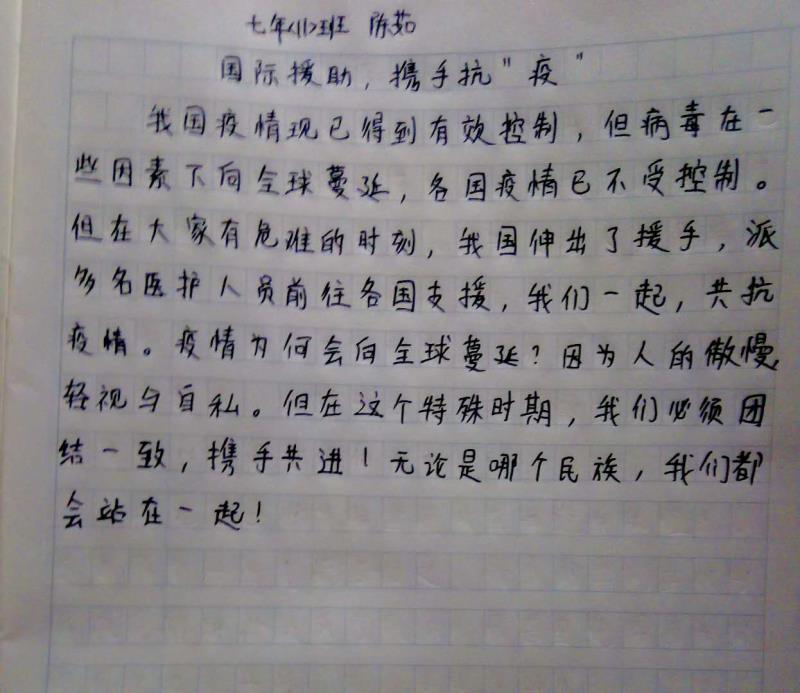 七年<11>班 陈茹
国际援助，携手抗"疫"
我国疫情现已得到有效控制，但病毒在一
些因素下向全球蔓延，各国疫情已不受控制。
但在大家有危难的时刻，我国伸出了援手，派
多名医护人员前往各国支援，我们一起，共抗
疫情。疫情为何会向全球蔓延？因为人的傲慢，
轻视与自私。但在这个特殊时期，我们必须团
结一致，携手共进！无论是哪个民族，我们都
会站在一起！